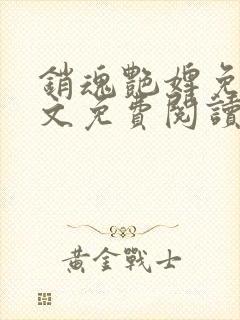 銷魂艷婢免
文免費閱讀
黃金戰士